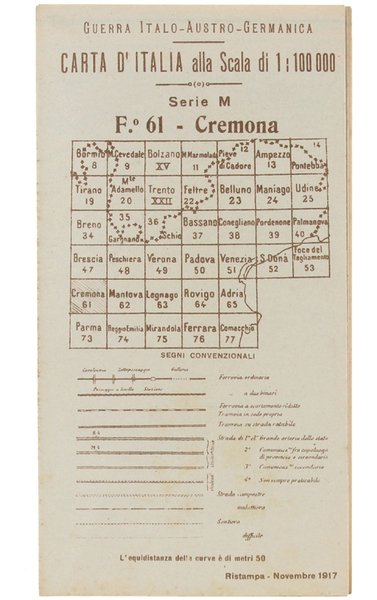 GUERRA ITALO-AUSTRO-GERMANICA
CARTA D'ITALIA alla Scala di 1:100 000
Serie M
F.º 61 - Cremona
Bormio 8 M.Cevedale 9 Bolzano XV M.Marmolada 11 Pieve di Cadore 12 Ampezzo 13 Pontebba 14
Tirano 19 Mte Adamello 20 Trento XXII Feltre 22 Belluno 23 Maniago 24 Udine 25
Breno 34 35 Gargnano 36 Schio Bassano 37 Conegliano 38 Pordenone 39 Palmanova 40
Brescia 47 Peschiera 48 Verona 49 Padova 50 Venezia 51 S.Donà 52 Foce del Tagliamento 53
Cremona 61 Mantova 62 Legnago 63 Rovigo 64 Adria 65
Parma 73 Reggio Emilia 74 Mirandola 75 Ferrara 76 Comacchio 77
SEGNI CONVENZIONALI
Cavalcavia Sottopassaggio Galleria
Passaggio a livello Stazione
Ferrovia ordinaria
" a due binari
Ferrovia a scartamento ridotto
Tramvia in sede propria
Tramvia su strada rotabile
Strada di 1ª cl. Grande arteria dello stato
2ª " Comunicaz.ni fra capoluoghi di provincia e circondario
3ª " Comunicaz.ni secondarie
4ª " Non sempre praticabile
Strada campestre
mulattiera
Sentiero
" difficile
L'equidistanza delle curve è di metri 50
Ristampa - Novembre 1917